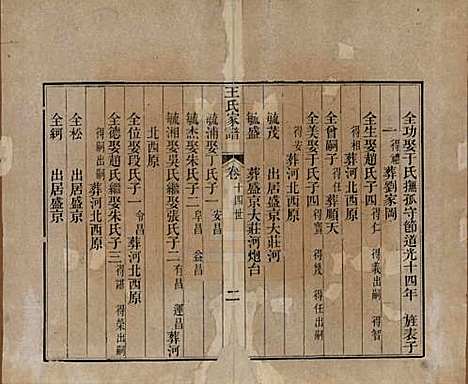 全功娶于氏撫孤守節道光十四年 旌表子
一 得禮 葬劉家岡
全生娶趙氏子四 得仁 得義出嗣 得智
得相 葬河北西原
全曾嗣子 得任 葬順天
全美娶于氏子四 得寬 得幾 得任出嗣
得安 葬河北西原
毓茂 出居盛京大莊河
毓盛 葬盛京大莊河炮台
王氏家譜 卷 十四世 二
毓浦娶丁氏子一 安昌
毓 娶朱氏子二 阜昌 益昌
毓湘娶吳氏繼娶張氏子二 有昌 運昌 葬河
北西原
全位娶段氏子一 令昌 葬河北西原
全德娶趙氏繼娶朱氏子三 得諶 得榮出嗣
得嗣 葬河北西原
全松 出居盛京
全鈳 出居盛京